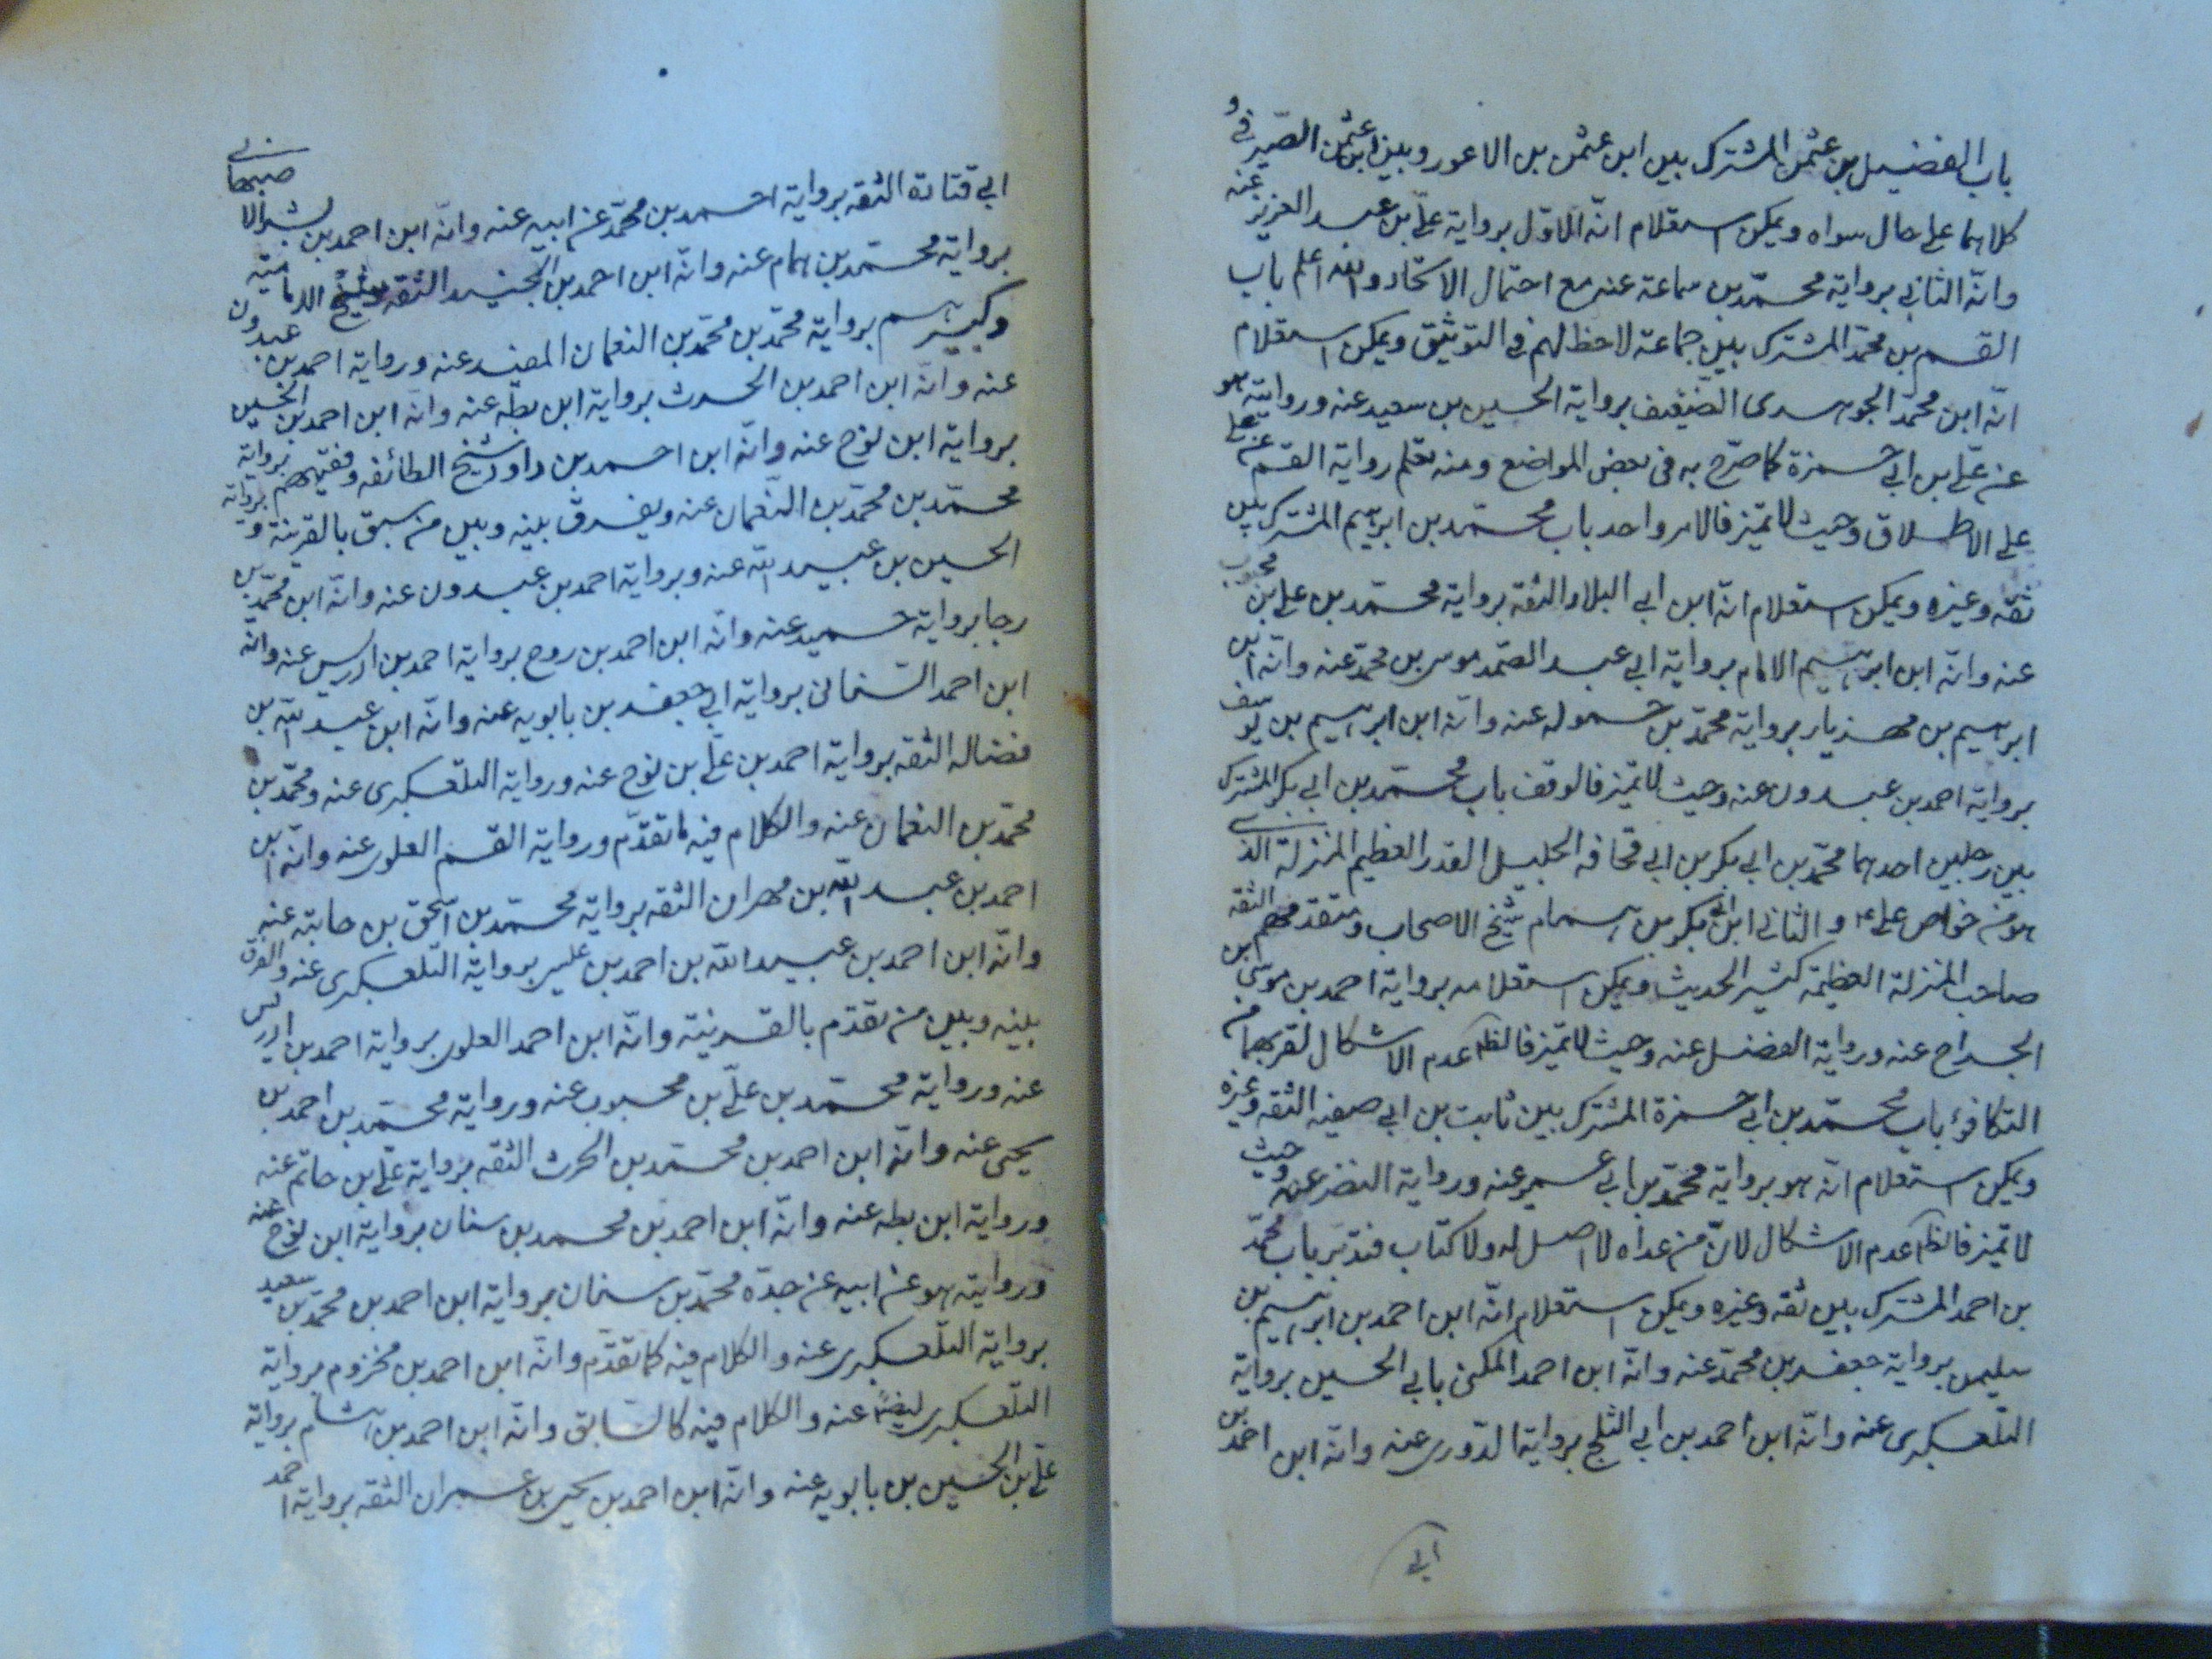 باب الفضيل بن عثمن المشترك بين ابن عثمن بن الاعور وبين ابن عثمن الصيرفى و
كلاهما على حال سواء ويمكن استعلام انّه الاوّل برواية علىّ بن عبد العزيز عنه
وانّه الثانى برواية محمّد بن سماعة عنه مع احتمال الاتحاد والله اعلم باب
القسم بن محمّد المشترك بين جماعة لاحظ لهم فى التوثيق ويمكن استعلام
انّه ابن محمّد الجوهرى الضّعيف برواية الحسين بن سعيد عنه وروايته هو
عن علىّ بن ابى حمزة كما صرّح به فى بعض المواضع ومنه تعلم رواية القسم عن على
على الاطلاق وحيث لا تميّز فالامر واحد باب محمّد بن ابرهيم المشترك بين
ثقه وغيره ويمكن استعلام انّه ابن ابى البلاد الثقة برواية محمّد بن على بن محبوب
عنه وانّه ابن ابرهيم الامام برواية ابى عبد الصّمد موسى بن محمّد عنه وانّه ابن
ابرهيم بن مهزيار برواية محمّد بن حموله عنه وانّه ابن ابرهيم بن يوسف
برواية احمد بن عبدون عنه وحيث لا تميّز فالوقف باب محمّد بن ابى بكر المشترك
بين رجلين احدهما محمّد بن ابى بكر بن ابى قحافه الجليل القدر العظيم المنزلة الذى
هو من خواص على ع والثانى ابن ابى بكر بن همام شيخ الاصحاب ومتقدمهم الثقه
صاحب المنزلة العظيمة كثير الحديث ويمكن استعلامه برواية احمد بن موسى بن
الجراح عنه ورواية الفضل عنه وحيث لا تميّز فالظ عدم الاشكال لقربهما من
التكافؤ باب محمّد بن ابى حمزة المشترك بين ثابت بن ابى صفيه الثقه وغيره
ويمكن استعلام انّه هو برواية محمّد بن ابى عمير عنه ورواية النضر عنه وحيث
لا تميّز فالظ عدم الاشكال لانّ من عداه لا اصل له ولا كتاب فتدبّر باب محمّد
بن احمد المشترك بين ثقه وغيره ويمكن استعلام انّه ابن احمد بن ابرهيم بن
سليمن برواية جعفر بن محمّد عنه وانّه ابن احمد المكنى بابى الحسين برواية
التلّعكبرى عنه وانّه ابن احمد بن ابى الثلج برواية الدّورى عنه وانّه ابن احمد بن
ابى
ابى قتادة الثقه برواية احمد بن محمّد عن ابيه عنه وانّه ابن احمد بن بشر الاصبهانى
برواية محمّد بن همام عنه وانّه ابن احمد بن الجنيد الثقه وشيخ الامامية
وكبيرهم برواية محمّد بن محمّد بن النعمان المفيد عنه ورواية احمد بن عبدون
عنه وانّه ابن احمد بن الحرث برواية ابن بطه عنه وانّه ابن احمد بن الحسين
برواية ابن نوح عنه وانّه ابن احمد بن داود شيخ الطائفه وفقيههم برواية
محمّد بن محمّد بن النّعمان عنه ويفرق بينه وبين من سبق بالقرينة و برواية
الحسين بن عبيد الله عنه وبرواية احمد بن عبدون عنه وانّه ابن محمّد بن
رجا برواية حميد عنه وانّه ابن احمد بن روح برواية احمد بن ادريس عنه وانّه
ابن احمد السّنانى برواية ابى جعفر بن بابويه عنه وانّه ابن عبد الله بن
فضاله الثقه برواية احمد بن علىّ بن نوح عنه ورواية التلّعكبرى عنه ومحمّد بن
محمّد بن النعمان عنه والكلام فيه ما تقدّم ورواية القسم العلوى عنه وانّه ابن
احمد بن عبد الله بن مهران الثقه برواية محمّد بن اسحق بن عنه
وانّه ابن احمد بن عبيد الله بن احمد بن برواية التّلعكبرى عنه والفرق
بينه وبين من تقدّم بالقرينة وانّه ابن احمد العلوى برواية احمد بن ادريس
عنه ورواية محمّد بن علىّ بن محبوب عنه ورواية محمّد بن احمد بن
يحيى عنه وانّه ابن احمد بن محمّد بن الحرث الثقه برواية علىّ بن حاتم عنه
ورواية ابن بطه عنه وانّه ابن احمد بن محمد بن سنان برواية ابن نوح عنه
وروايته هو عن ابيه عن جدّه محمّد بن سنان برواية ابن احمد بن محمّد بن سعيد
برواية التلّعكبرى عنه والكلام فيه كما تقدّم وانّه ابن احمد بن مخزوم برواية
التلّعكبرى ايضًا عنه والكلام فيه كالسّابق وانّه ابن احمد بن هشام برواية
علىّ بن الحسين بن بابويه عنه وانّه ابن احمد بن يحيى بن عمران الثقه برواية احمد